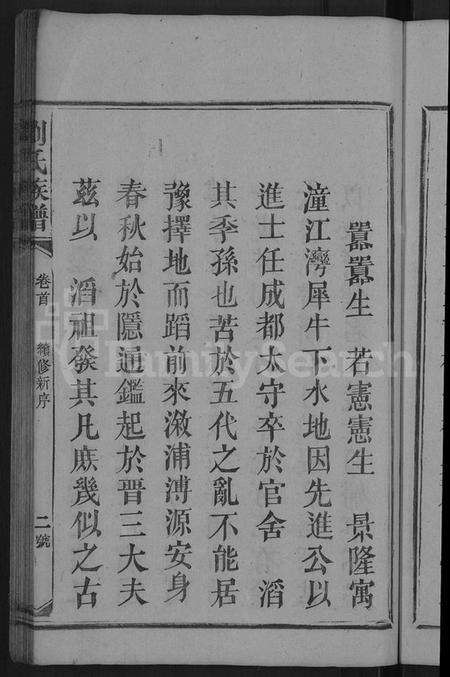 囂囂生　若憲憲生　景隆寓
潼江灣犀牛下水地因先進公以
進士任成都太守卒於官舍　滔
其季孫也苦於五代之亂不能居
豫擇地而蹈前來漵浦溥源安身
春秋始於隱通鑑起於晉三大夫
茲以　滔祖發其凡庶幾似之古
劉氏族譜
卷首
續修新序
二號
FamilySearch